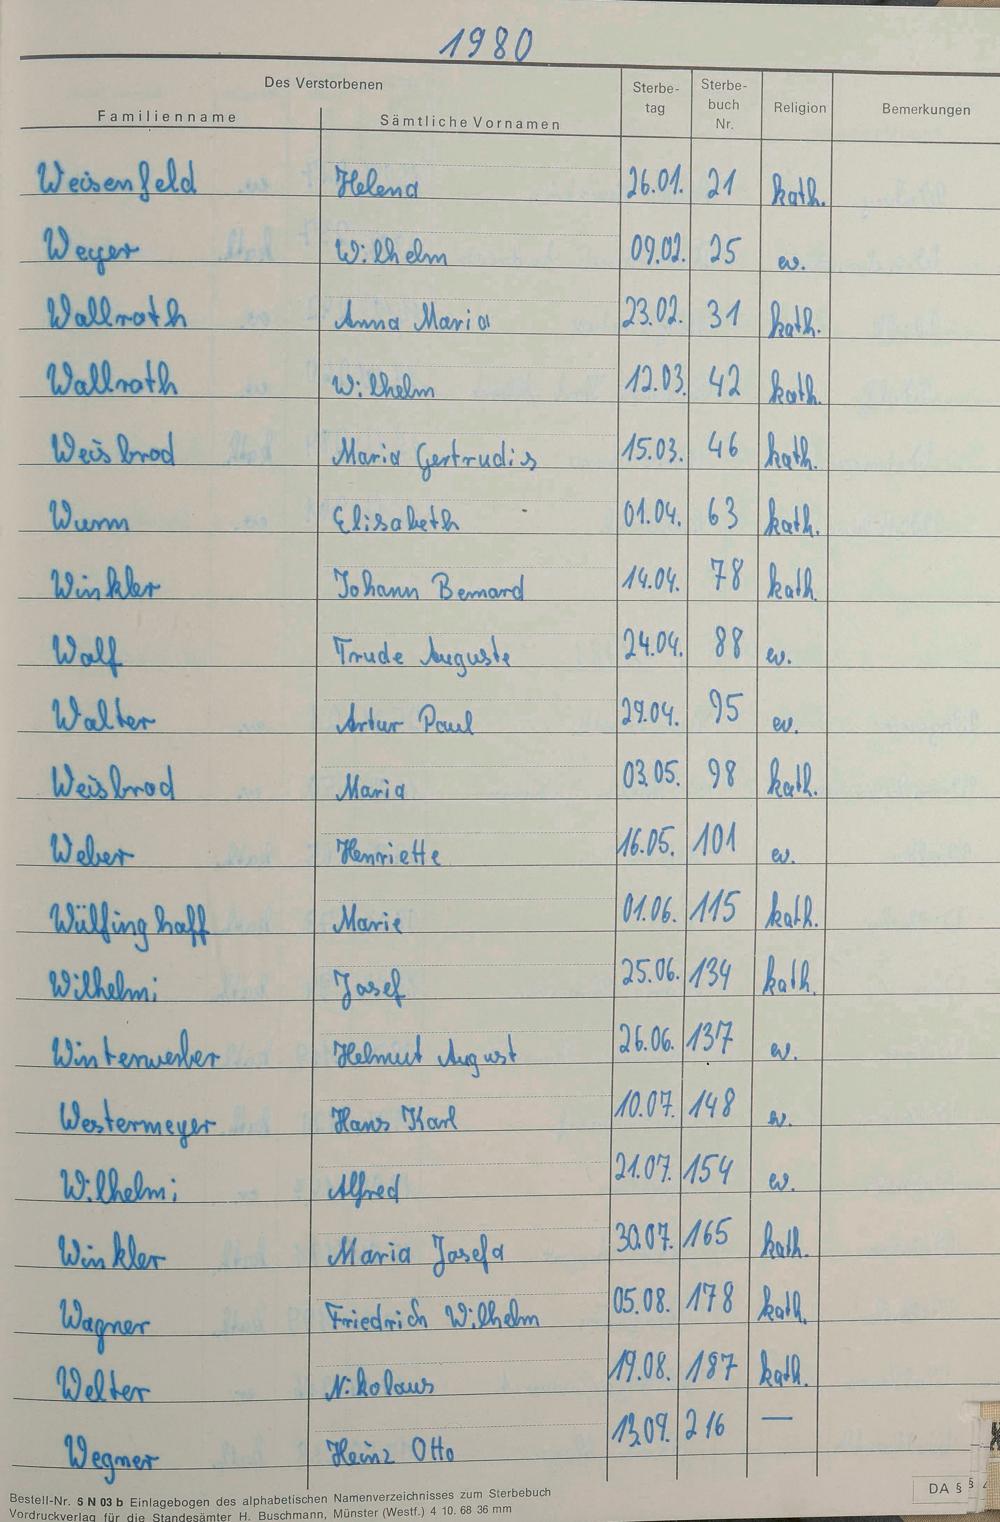 1980
Des Verstorbenen
Familienname Sämtliche Vornamen Sterbe-tag Sterbe-buch Nr. Religion Bemerkungen
Weisenfeld Helena 26.01. 21 kath.
Weyer Wilhelm 09.02. 25 ev.
Wallrath Anna Maria 23.02. 31 kath.
Wallrath Wilhelm 12.03. 42 kath.
Weisbrod Maria Gertrudis 15.03. 46 kath.
Wurm Elisabeth 01.04. 63 kath.
Winkler Johann Bernard 14.04. 78 kath.
Wolf Trude Auguste 24.04. 88 ev.
Walter Artur Paul 29.04. 95 ev.
Weisbrod Maria 03.05. 98 kath.
Weber Henriette 16.05. 101 ev.
Wülfinghoff Marie 01.06. 115 kath.
Wilhelmi Josef 25.06. 134 kath.
Winterwerber Helmut August 26.06. 137 ev.
Westermeyer Hans Karl 10.07. 148 ev.
Wilhelmi Alfred 21.07. 154 ev.
Winkler Maria Josefa 30.07. 165 kath.
Wagner Friedrich Wilhelm 05.08. 178 kath.
Welter Nikolaus 19.08. 187 kath.
Wegner Heinz Otto 13.09. 216 —
Bestell-Nr. S N 03 b Einlagebogen des alphabetischen Namenverzeichnisses zum Sterbebuch
Vordruckverlag für die Standesämter H. Buschmann, Münster (Westf.) 4 10. 68 36 mm
DA §